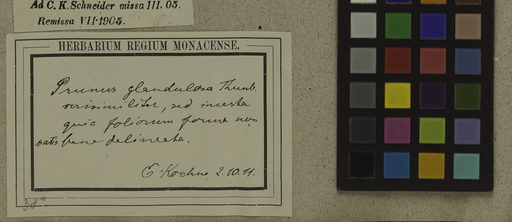 Ad C. K. Schneider missa III. 05.
Remissa VII-1905.
HERBARIUM REGIUM MONACENSE.
Prunus glandulosa Thunb.
verisimiliter, sed incerta
quia foliorum forma non
satis bene delineata.
E Koehne 2.10.11.